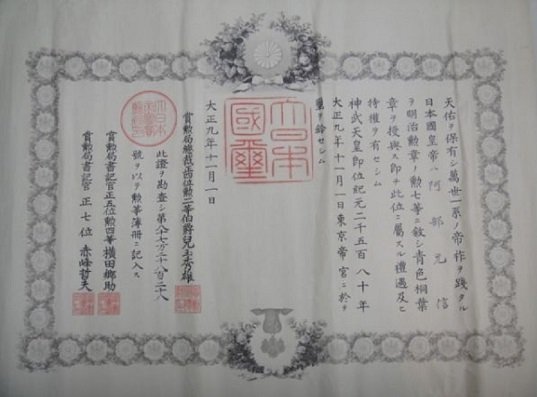 天佑ヲ保有シ萬世一系ノ帝祚ヲ踐タル
日本國皇帝ハ阿部元信
ヲ明治勲章ノ勲七等ニ敘シ青色桐葉
章ヲ授與ス即チ此位ニ屬スル禮遇及ヒ
特權ヲ有セシム
神武天皇即位紀元二千五百八十年
大正九年十一月一日東京帝宮ニ於テ
璽ヲ鈐セシム
大日本
國璽
大正九年十一月一日
賞勲局總裁正四位勲二等伯爵兒玉秀雄
此證ヲ勘査シ第八十七万二千八百二十八
號ヲ以テ勲等簿冊ニ記入ス
賞勲局書記官正五位勲四等横田郷助
賞勲局書記官正七位赤峰哲夫